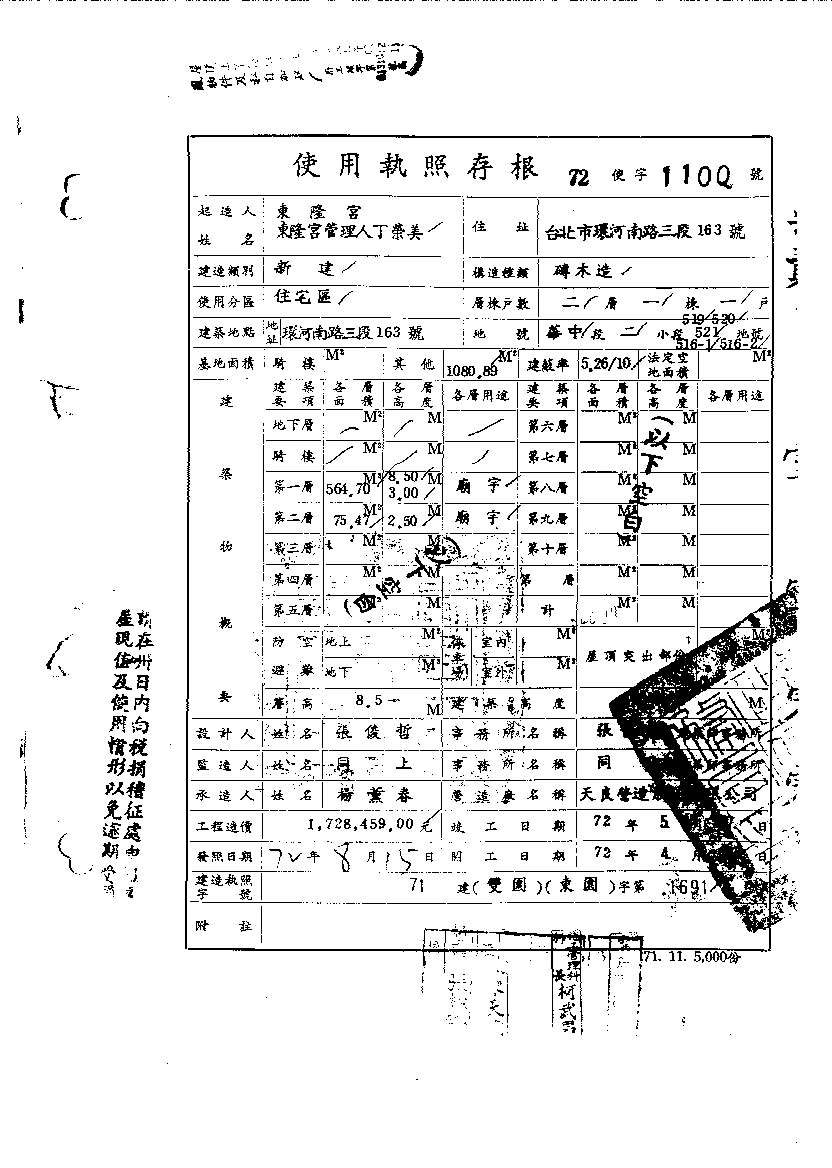 使用執照存根 72 使字 1100 號
起造人姓名 東隆宮 東隆宮管理人丁榮美 住址 台北市環河南路三段163號
建造類別 新建 構造種類 磚木造
使用分區 住宅區 層棟戶數 二層一棟一戶
建築地點 地址 環河南路三段163號 地號 華中段二小段 519/520/521/516-1/516-2 地號
基地面積 騎樓 M² 其他 1080.89 M² 建蔽率 5.26/10 法定空地面積 M²
建築物概要
建築要項 各層面積 各層高度 各層用途 建築要項 各層面積 各層高度 各層用途
地下層 M² M 第六層 M² M
騎樓 M² M 第七層 M² M
第一層 564.70 M² 8.50 3.00 M 廟宇 第八層 M² M
第二層 75.47 M² 2.50 M 廟宇 第九層 M² M
第三層 M² M 第十層 M² M
第四層 M² M 第 層 M² M
第五層 M 計 M² M
(以下空白)
(以下空白)
防空避難 地上 M² 室內 M² 屋頂突出部份 M²
地下 M² M²
層高 8.5 M 建築高度 M
設計人 姓名 張俊哲 事務所名稱 張
監造人 姓名 同上 事務所名稱 同
承造人 姓名 楊薰春 營造廠名稱 天良營造 公司
工程造價 1,728,459.00元 竣工日期 72年5 日
發照日期 72年8月15日 開工日期 72年4月
建造執照字號 71 建(雙園)(東園)字第 1691
附註
71. 11. 5,000份
管理科
長 柯武
屋現值及使用情形以免逾期受
在卅日內向稅捐稽征處